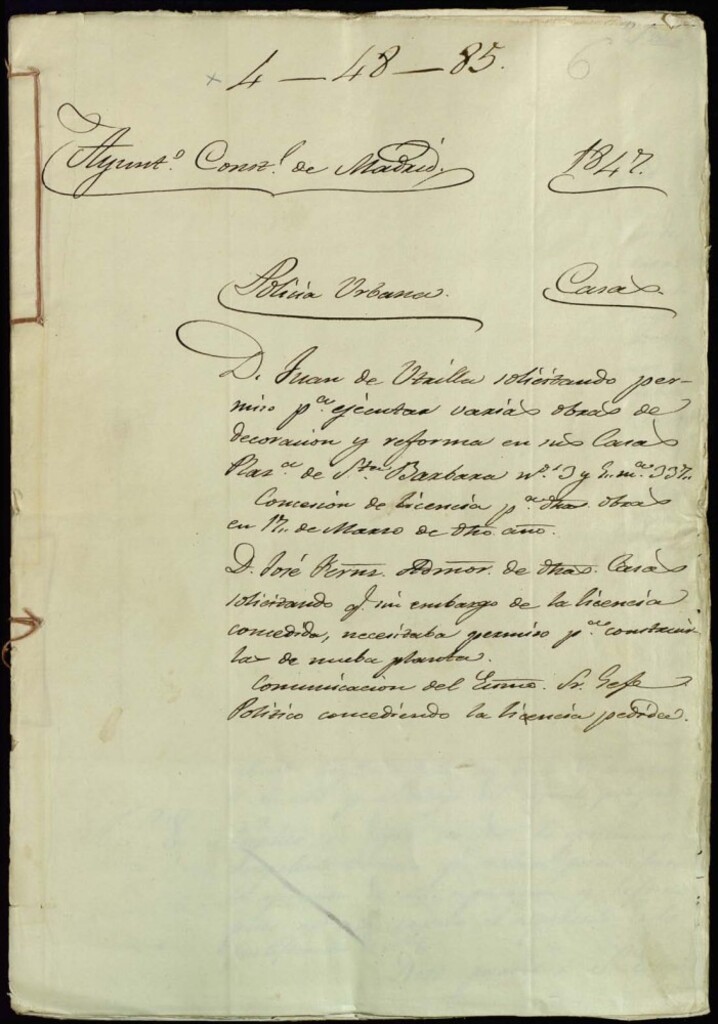 4 — 48 — 85.
6
Ayunt.º Const.l de Madrid. 1847.
Policia Urbana. Casas.
D. Juan de Utrilla solicitando per-
miso p.ª ejecutar varias obras de
decoracion y reforma en sus Casas
Plaz.ª de S.ta Barbara nº. 1 3 y
Concesion de licencia p.ª dhas. obras
en 17,, de Marzo de dho. año.
D. José Admor. de dhas. Casas
solicitando q. sin embargo de la licencia
concedida, necesitaba permiso p.ª construir
las de nueba planta.
Comunicacion del Exmo. Sr. Gefe
Politico concediendo la licencia pedida.